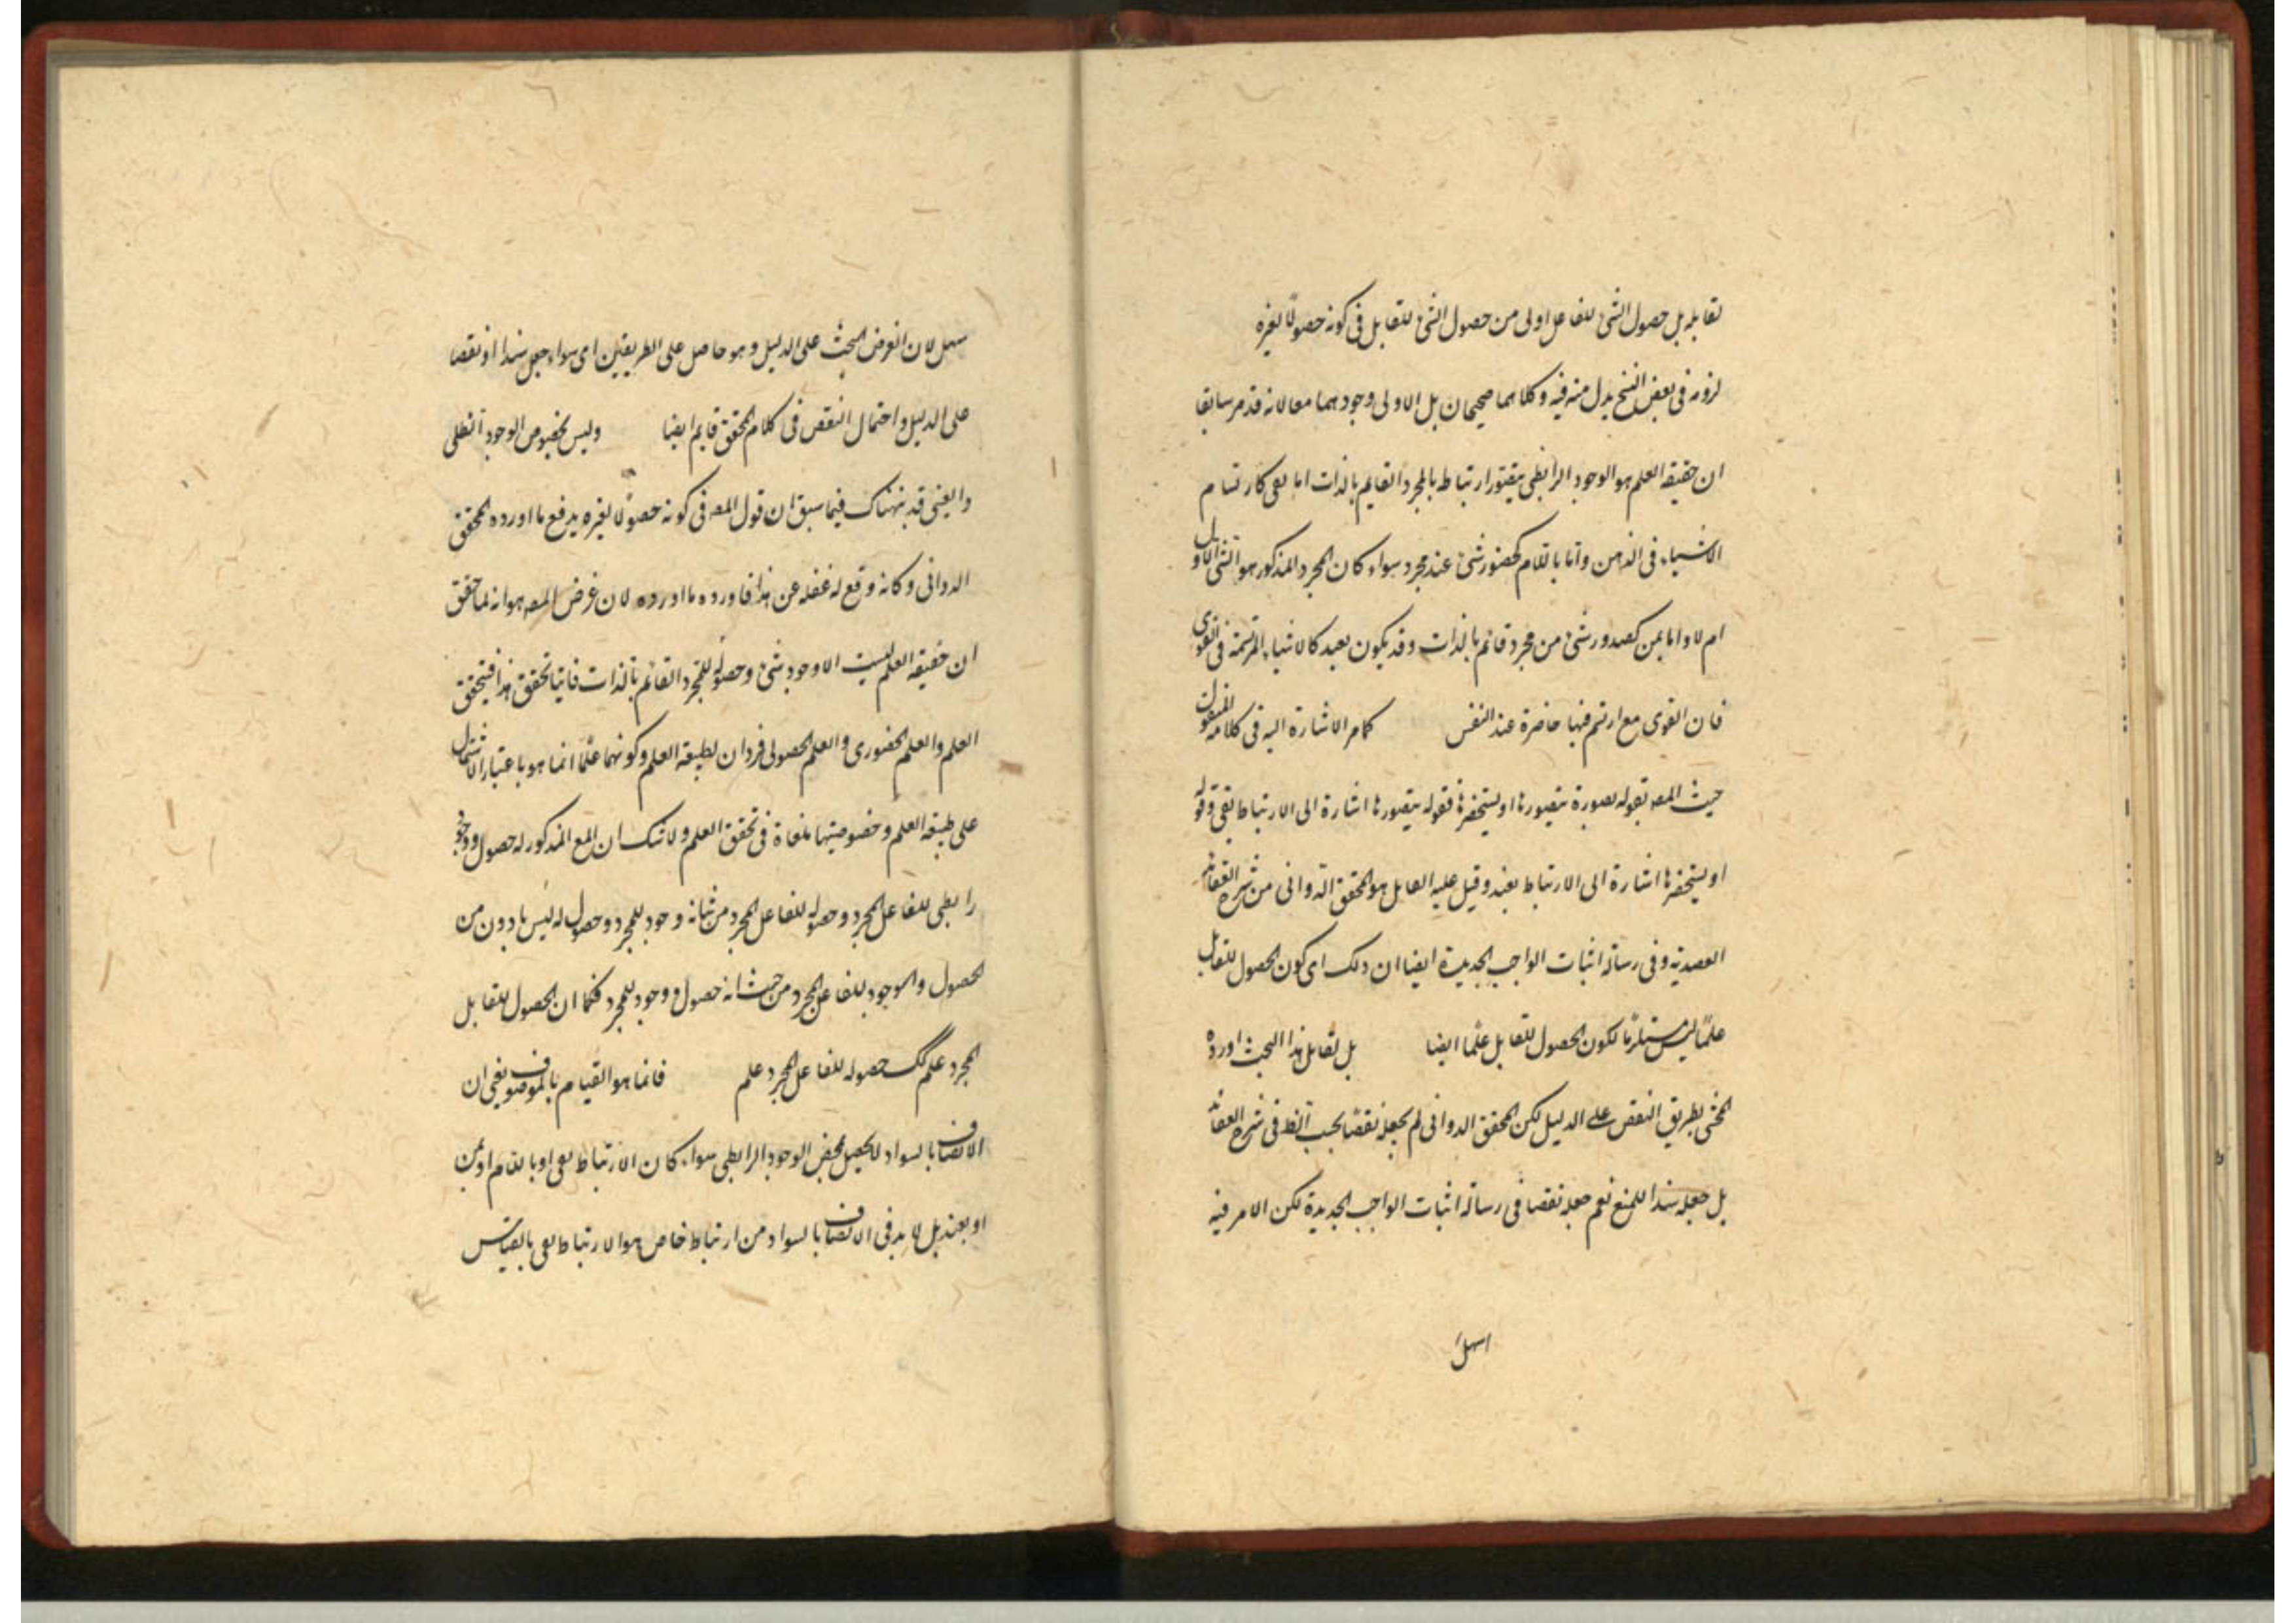 لقابله بل حصول الشئ للفاعل اولى من حصول الشئ للقابل فى كونه حصولًا لغيره
لزومه فى بعض النسخ بدل منه فيه وكلاهما صحيحان بل الاولى وجودهما معا لانه قد مر سابقا
ان حقيقة العلم هو الوجود الرابطى بارتباط بالمجرد القايم بالذات اما بفى كارتسام
الاشياء فى الذهن واما باللام كحضور شئ عند مجرد سواء كان المجرد المذكور هو الشئ الاول
ام لا واما بمن كصدور شئ من مجرد قائم بالذات وقد يكون بعند كالاشياء المرتسمة فى القوى
فان القوى مع ارتسم فيها حاضرة عند النفس كما مر الاشارة اليه فى كلامه المنقول
حيث المص بقوله بصورة يتصورها او يستحضرها فقوله يتصورها اشارة الى الارتباط بفى وقوله
او يستحضرها اشارة الى الارتباط بعند وقيل عليه القايل هو المحقق الدوانى من شرح العقائد
العضدية وفى رسالة اثبات الواجب الجديدة ايضا ان ذلك اى كون الحصول للقابل
علمًا ليس مستلزمًا لكون الحصول للقابل علمًا ايضا بل لقايل هذا البحث اورده
المحشى بطريق النقض على الدليل لكن المحقق الدوانى لم يجعله نقضًا بحسب الظ فى شرح العقائد
بل جعله سندا للمنع نعم جعله نقضا فى رسالة اثبات الواجب الجديدة لكن الامر فيه
اسهل
سهل لان الغرض البحث على الدليل وهو حاصل على الطريقين اى سواء جعل سندا او نقضا
على الدليل واحتمال النقض فى كلام المحقق قايم ايضا وليس بخصوص الوجود العقلى
والعينى قد نبهناك فيما سبق ان قول المص فى كونه حصولًا لغيره يدفع ما اورده المحقق
الدوانى وكانه وقع له غفلة عن هذا فاورده ما اورده لان غرض المص هو انه لما حقق
ان حقيقة العلم ليست الا وجود شئ وحصوله للمجرد القائم بالذات فايتما تحقق هذا فيتحقق
العلم والعلم الحضورى والعلم الحصولى فردان لطبيعة العلم وكونهما علمًا انما هو باعتبار الاشتمال
على طبيعة العلم وخصوصيتها ملغاة فى تحقق العلم ولا شك ان المع المذكور له حصول ووجود
رابطى للفاعل المجرد وحصوله للفاعل المجرد من حيث انه وجود للمجرد وحصول له ليس بادون من
الحصول والوجود للفاعل المجرد من حيث انه حصول ووجود للمجرد فكما ان الحصول للقابل
المجرد علم كك حصوله للفاعل المجرد علم فانما هو القيام بالموصوف يعنى ان
الاتصاف بالسواد لا يحصل بمحض الوجود الرابطى سواء كان الارتباط بفى او باللام او بمن
او بعند بل لا بد فى الاتصاف بالسواد من ارتباط خاص هو الارتباط بفى بالقياس